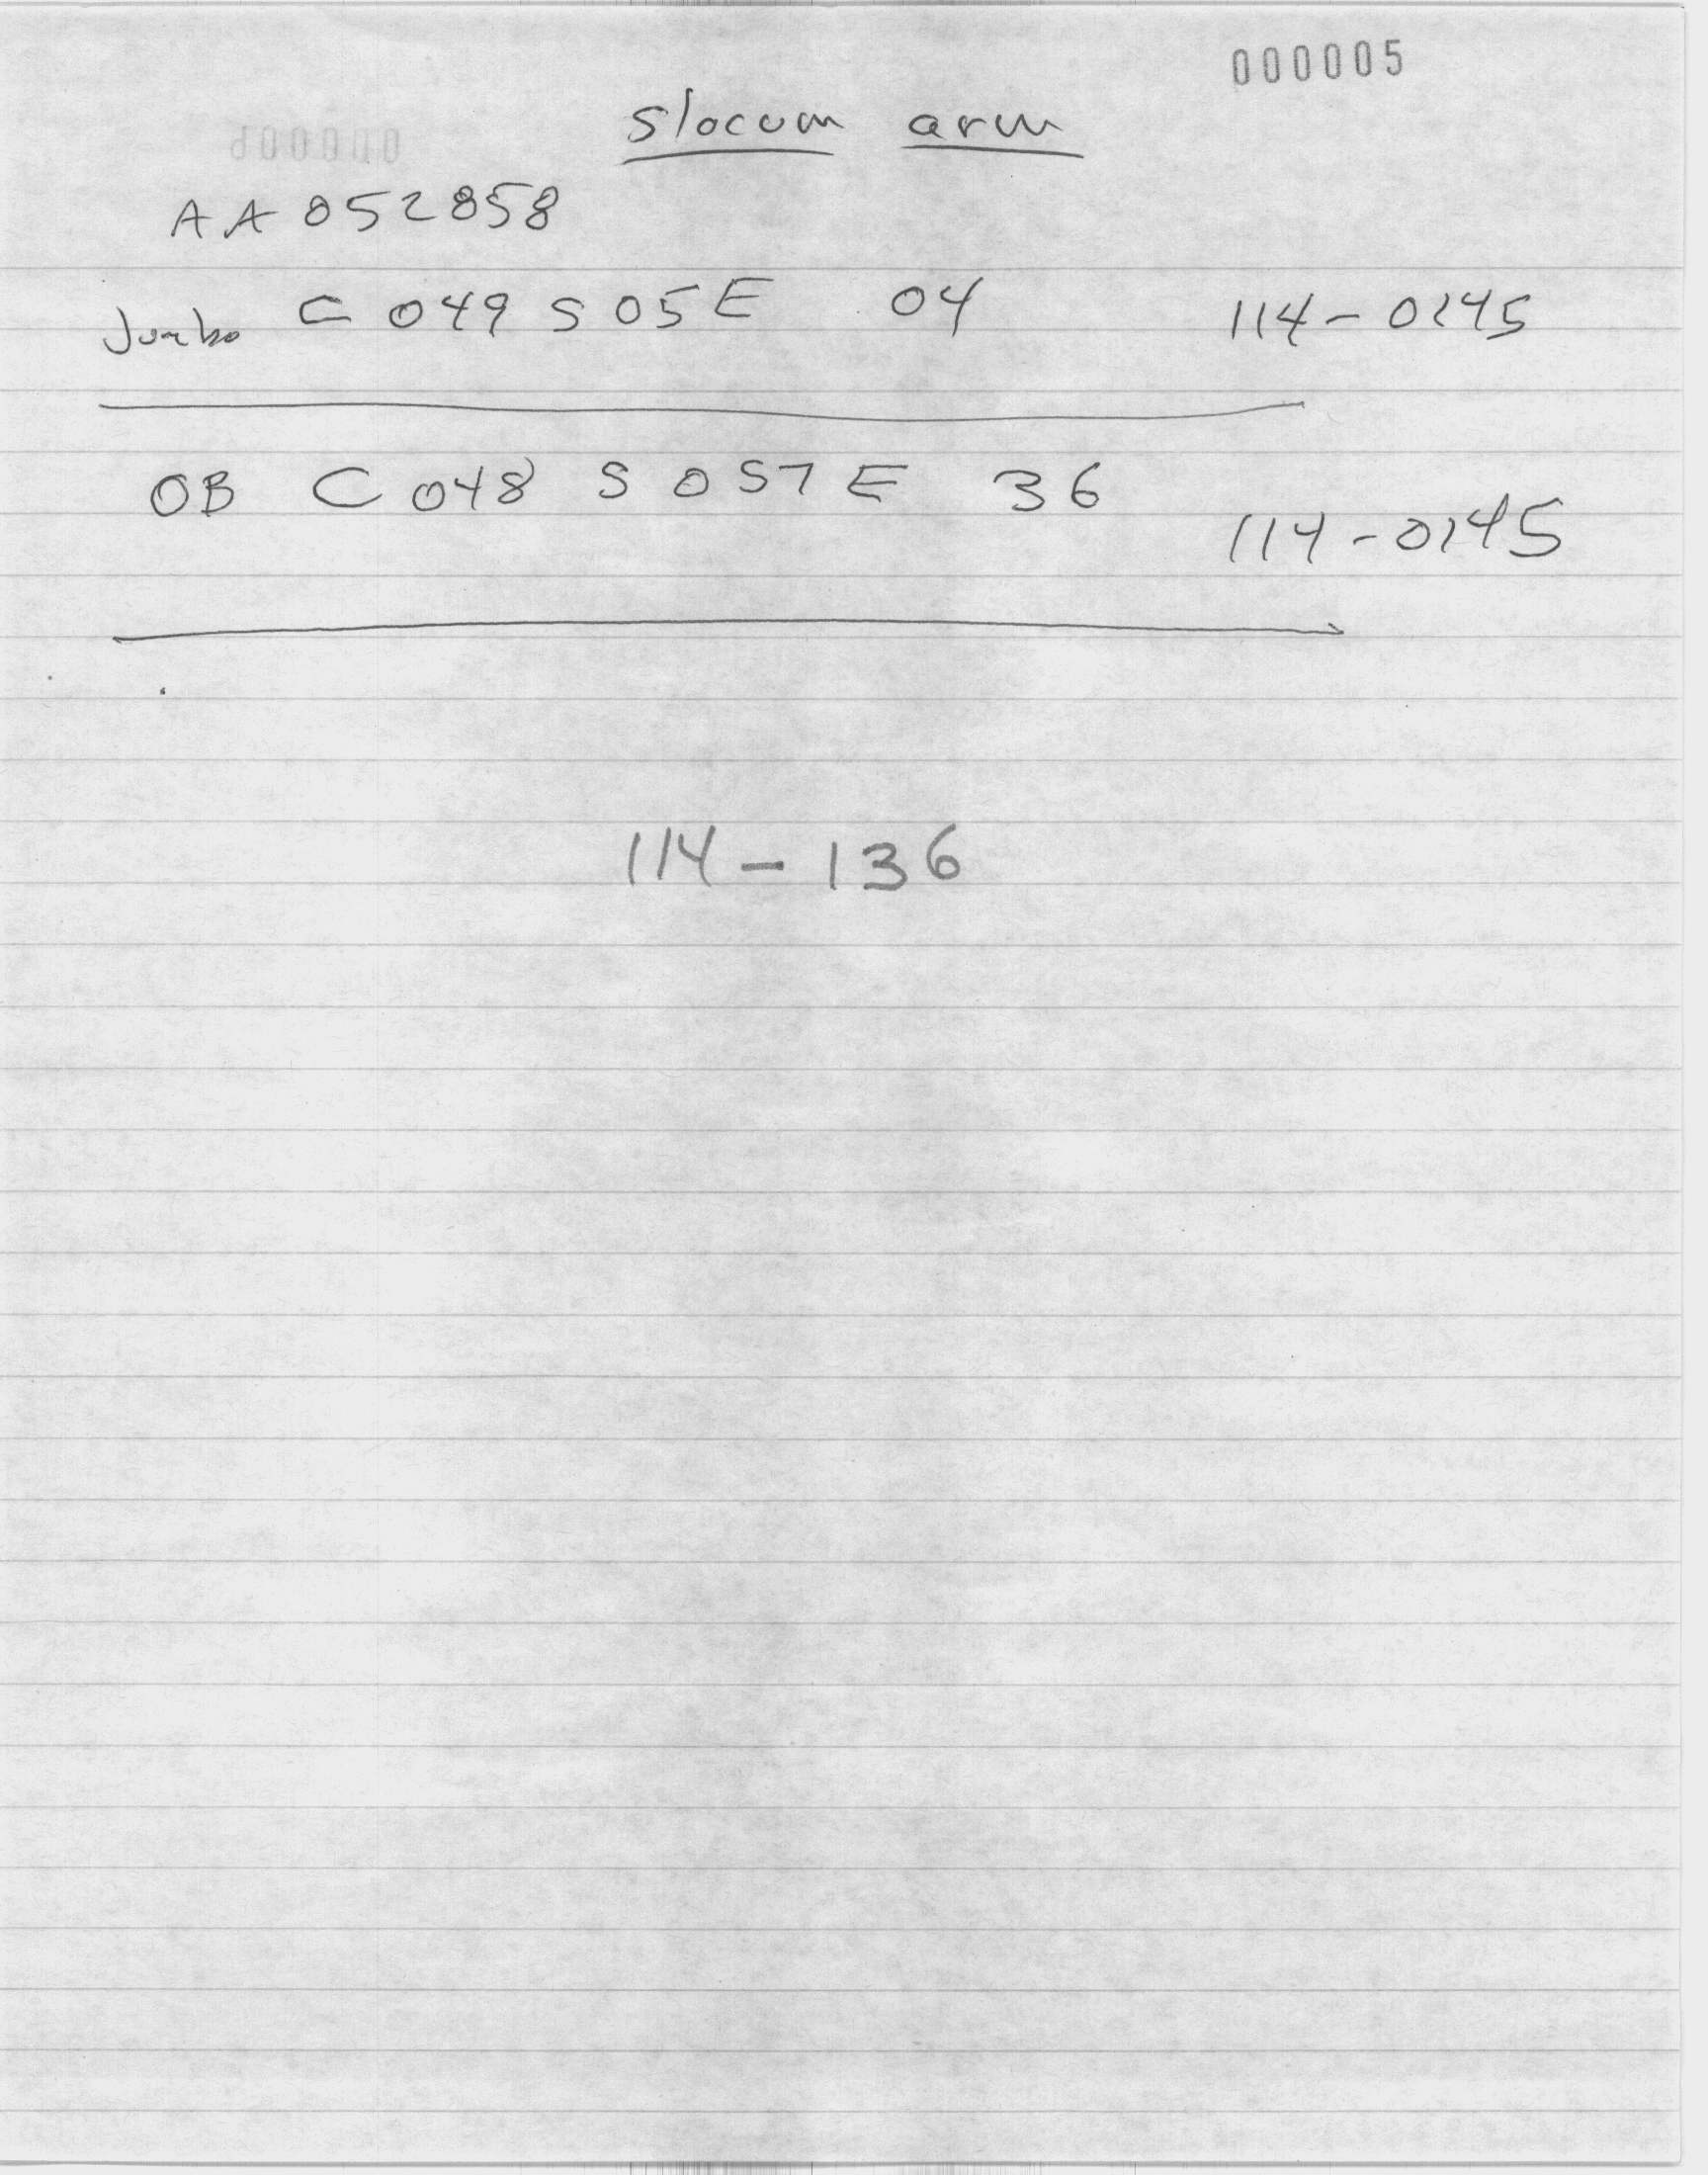 000005
Slocum arm
AA 052858
Jumbo C 049 S 05 E 04 114-0145
OB C 048 S 057 E 36 114-0145
114-136